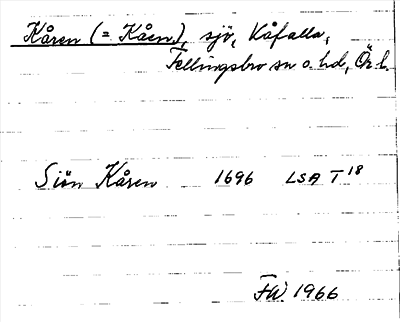 Kåren (= Kåen), sjö, Kåfalla,
Fellingsbro sn o. hd, Ör l.
Siön Kåren 1696 LSA T18
FW 1966